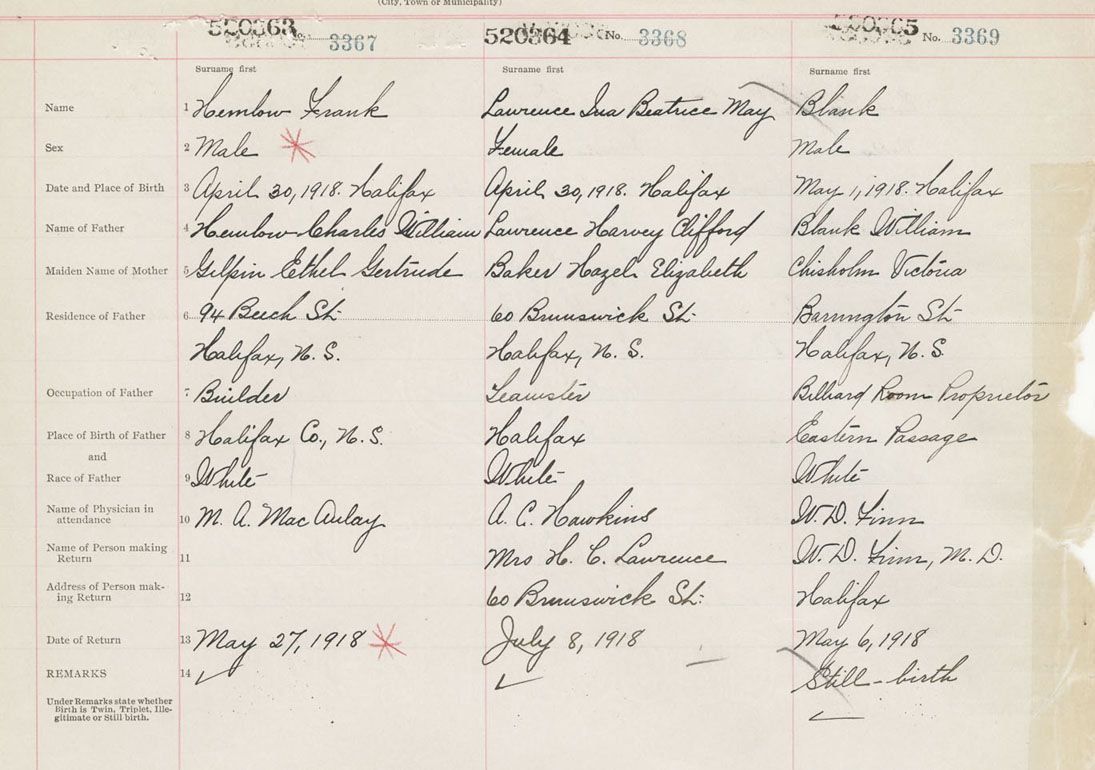 (City, Town or Municipality)
520363 No. 3367 520364 No. 3368 520365 No. 3369
Surname first Surname first Surname first
Name 1 Hemlow Frank Lawrence Ina Beatrice May Blank
Sex 2 Male Female Male
Date and Place of Birth 3 April 30, 1918. Halifax April 30, 1918. Halifax May 1, 1918. Halifax
Name of Father 4 Hemlow Charles William Lawrence Harvey Clifford Blank William
Maiden Name of Mother 5 Gilpin Ethel Gertrude Baker Hazel Elizabeth Chisholm Victoria
Residence of Father 6 94 Beech St. 60 Brunswick St. Barrington St.
Halifax, N. S. Halifax, N. S. Halifax, N. S.
Occupation of Father 7 Builder Teamster Billiard Room Proprietor
Place of Birth of Father 8 Halifax Co., N. S. Halifax Eastern Passage
and
Race of Father 9 White White White
Name of Physician in
attendance 10 M. A. MacAulay A. C. Hawkins W. D. Finn
Name of Person making
Return 11 Mrs H. C. Lawrence W. D. Finn, M. D.
Address of Person mak-
ing Return 12 60 Brunswick St. Halifax
Date of Return 13 May 27, 1918 July 8, 1918 May 6, 1918
REMARKS 14 Still-birth
Under Remarks state whether
Birth is Twin, Triplet, Ille-
gitimate or Still birth.